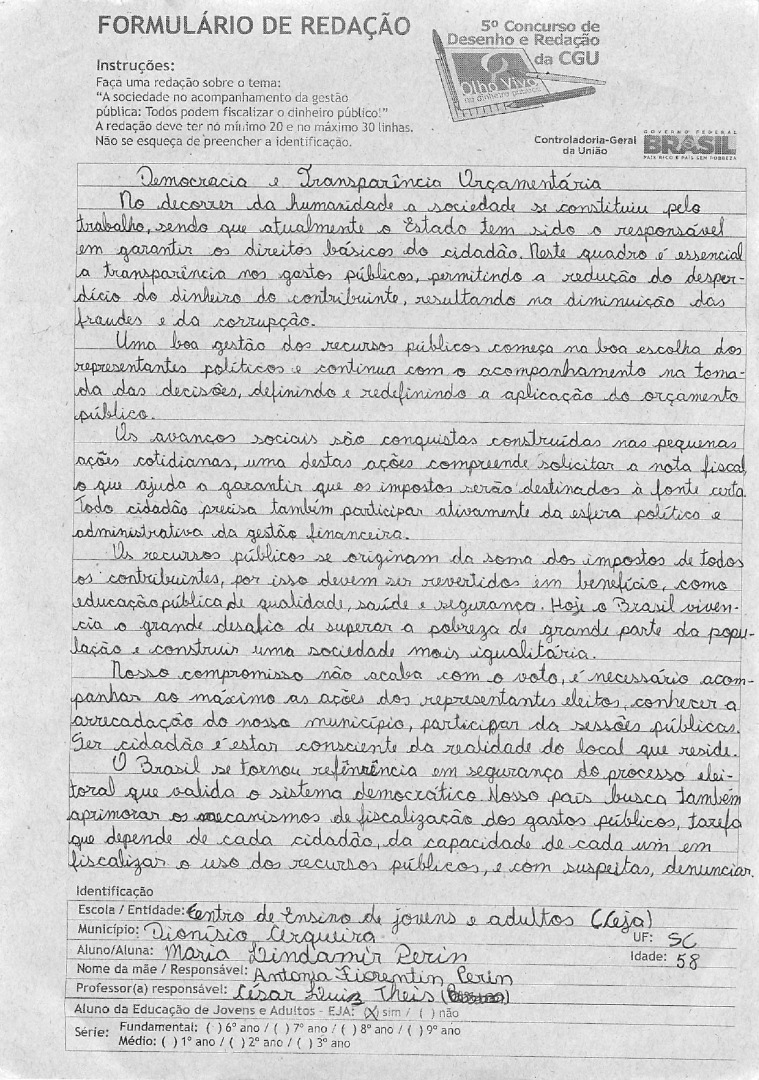 FORMULÁRIO DE REDAÇÃO
5º Concurso de
Desenho e Redação
da CGU
Olho Vivo
no dinheiro público
Instruções:
Faça uma redação sobre o tema:
"A sociedade no acompanhamento da gestão
pública: Todos podem fiscalizar o dinheiro público!"
A redação deve ter no mínimo 20 e no máximo 30 linhas.
Não se esqueça de preencher a identificação.
Controladoria-Geral
da União
GOVERNO FEDERAL
BRASIL
PAÍS RICO É PAÍS SEM POBREZA
Democracia e Transparência Orçamentária
No decorrer da humanidade a sociedade se constituiu pelo
trabalho, sendo que atualmente o Estado tem sido o responsável
em garantir os direitos básicos do cidadão. Neste quadro é essencial
a transparência nos gastos públicos, permitindo a redução do desper-
dício do dinheiro do contribuinte, resultando na diminuição das
fraudes e da corrupção.
Uma boa gestão dos recursos públicos começa na boa escolha dos
representantes políticos e continua com o acompanhamento na toma-
da das decisões, definindo e redefinindo a aplicação do orçamento
público.
Os avanços sociais são conquistas construídas nas pequenas
ações cotidianas, uma destas ações compreende solicitar a nota fiscal,
o que ajuda a garantir que os impostos serão destinados à fonte certa.
Todo cidadão precisa também participar ativamente da esfera política e
administrativa da gestão financeira.
Os recursos públicos se originam da soma dos impostos de todos
os contribuintes, por isso devem ser revertidos em benefício, como
educação pública de qualidade, saúde e segurança. Hoje o Brasil viven-
cia o grande desafio de superar a pobreza de grande parte da popu-
lação e construir uma sociedade mais igualitária.
Nosso compromisso não acaba com o voto, é necessário acom-
panhar ao máximo as ações dos representantes eleitos, conhecer a
arrecadação do nosso município, participar da sessões públicas.
Ser cidadão é estar consciente da realidade do local que reside.
O Brasil se tornou refênrência em segurança do processo elei-
toral que valida o sistema democrático. Nosso país busca também
aprimorar os mecanismos de fiscalização dos gastos públicos, tarefa
que depende de cada cidadão, da capacidade de cada um em
fiscalizar o uso dos recursos públicos, e com suspeitas, denunciar.
Identificação
Escola / Entidade: Centro de Ensino de jovens e adultos (Ceja)
Município: Dionísio Cerqueira UF: SC
Aluno/Aluna: Maria Lindamir Perin Idade: 58
Nome da mãe / Responsável: Antonia Fiorentin Perin
Professor(a) responsável: César Luiz Theis
Aluno da Educação de Jovens e Adultos - EJA: (X) sim / ( ) não
Série: Fundamental: ( ) 6º ano / ( ) 7º ano / ( ) 8º ano / ( ) 9º ano
Médio: ( ) 1º ano / ( ) 2º ano / ( ) 3º ano